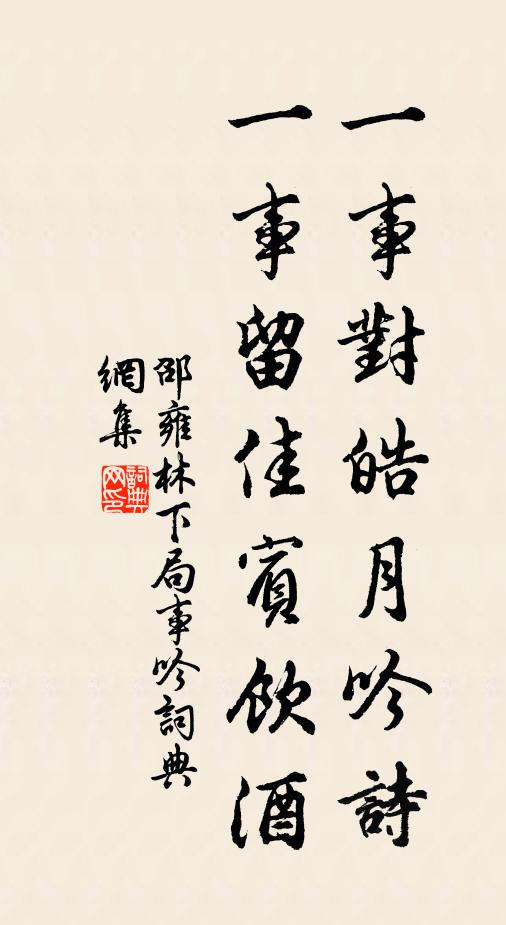 一事對皓月吟詩
一事留佳賓飲酒
邵雍林下局事吟詞典
網集
詞典网印